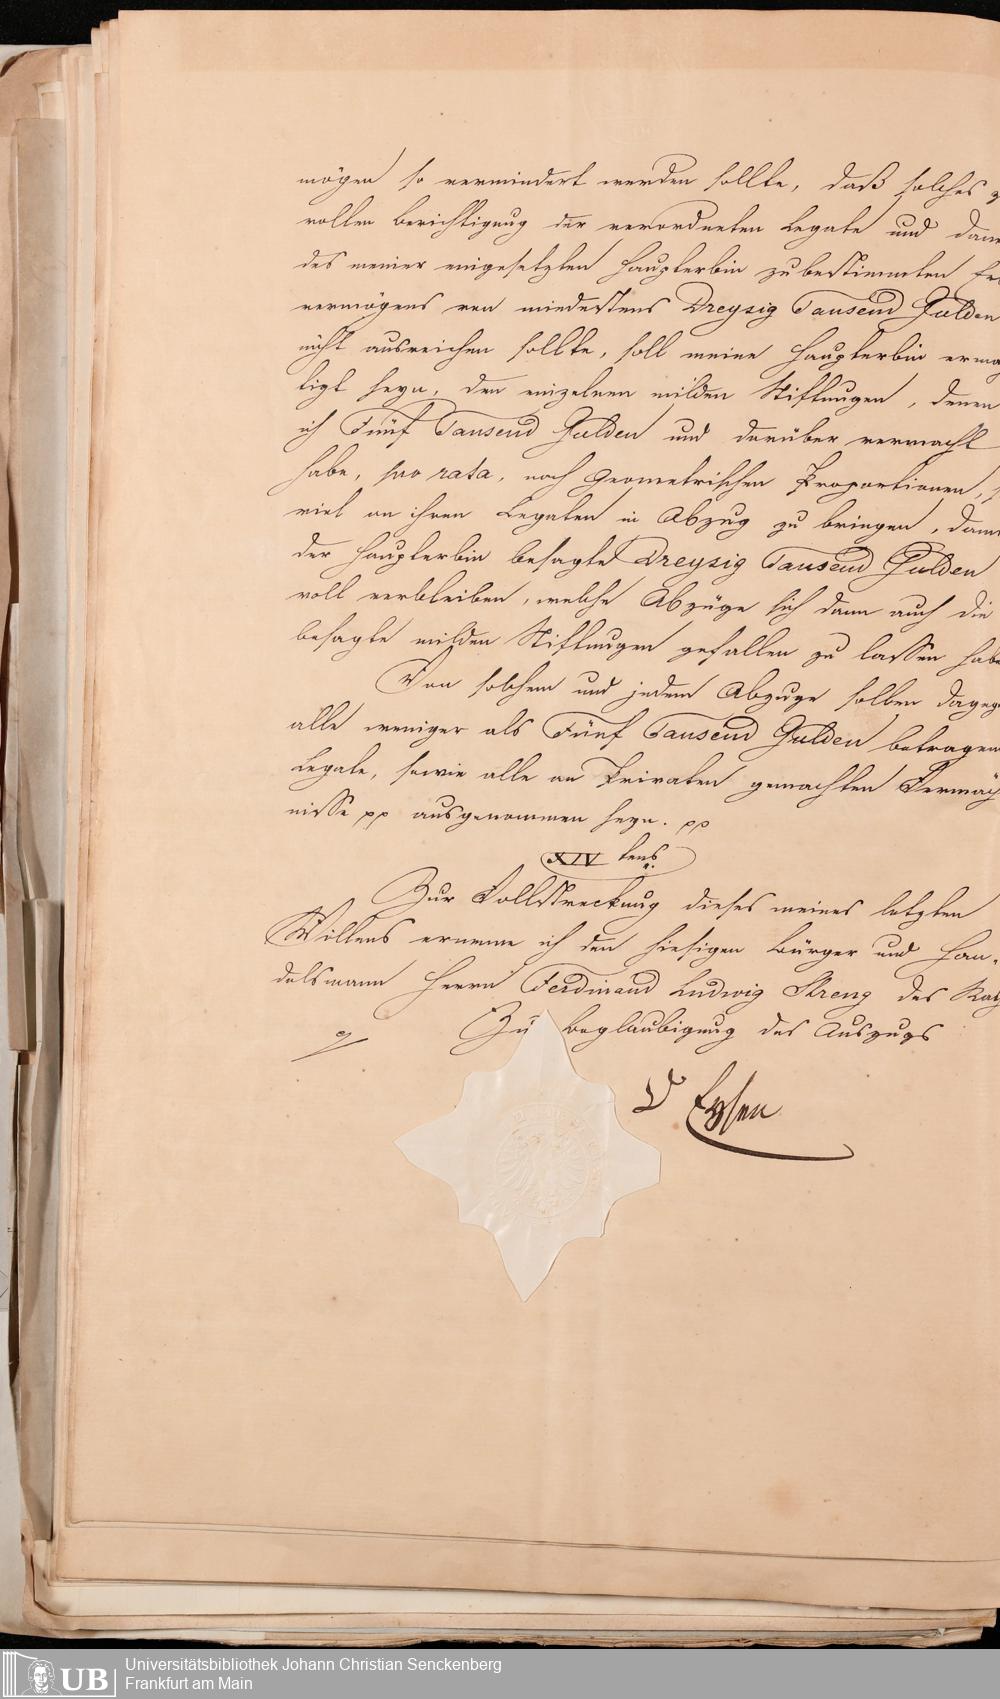 mögen so vermindert werden sollte, daß solches z
vollen Berichtigung der verordneten Legate und dann
des meiner eingesetzten Haupterbin zu bestimmten Er
vermögens von mindestens Dreysig Tausend Gulden
nicht ausreichen sollte, soll meine Haupterbin ermäch
tigt seyn, den einzelnen milden Stiftungen, denen
ich Fünf Tausend Gulden und darüber vermacht
habe, pro rata, nach geometrischen Proportionen, s
viel an ihren Legaten in Abzug zu bringen, dam
der Haupterbin besagte Dreysig Tausend Gulden
voll verbleiben, welche Abzüge sich dann auch die
besagte milden Stiftungen gefallen zu lassen habe
Von solchem und jedem Abzuge sollen dageg
alle weniger als Fünf Tausend Gulden betragen
Legate, sowie alle an Privaten gemachten Vermäch
nisse pp ausgenommen seyn. pp
XIV tens.
Zur Vollstreckung dieses meines letzten
Willens ernenne ich den hiesigen Bürger und Han-
delsmann Herrn Ferdinand Ludwig Streng des Rath
Zur Beglaubigung des Auszugs
Dr Eysen
UB Universitätsbibliothek Johann Christian Senckenberg
Frankfurt am Main